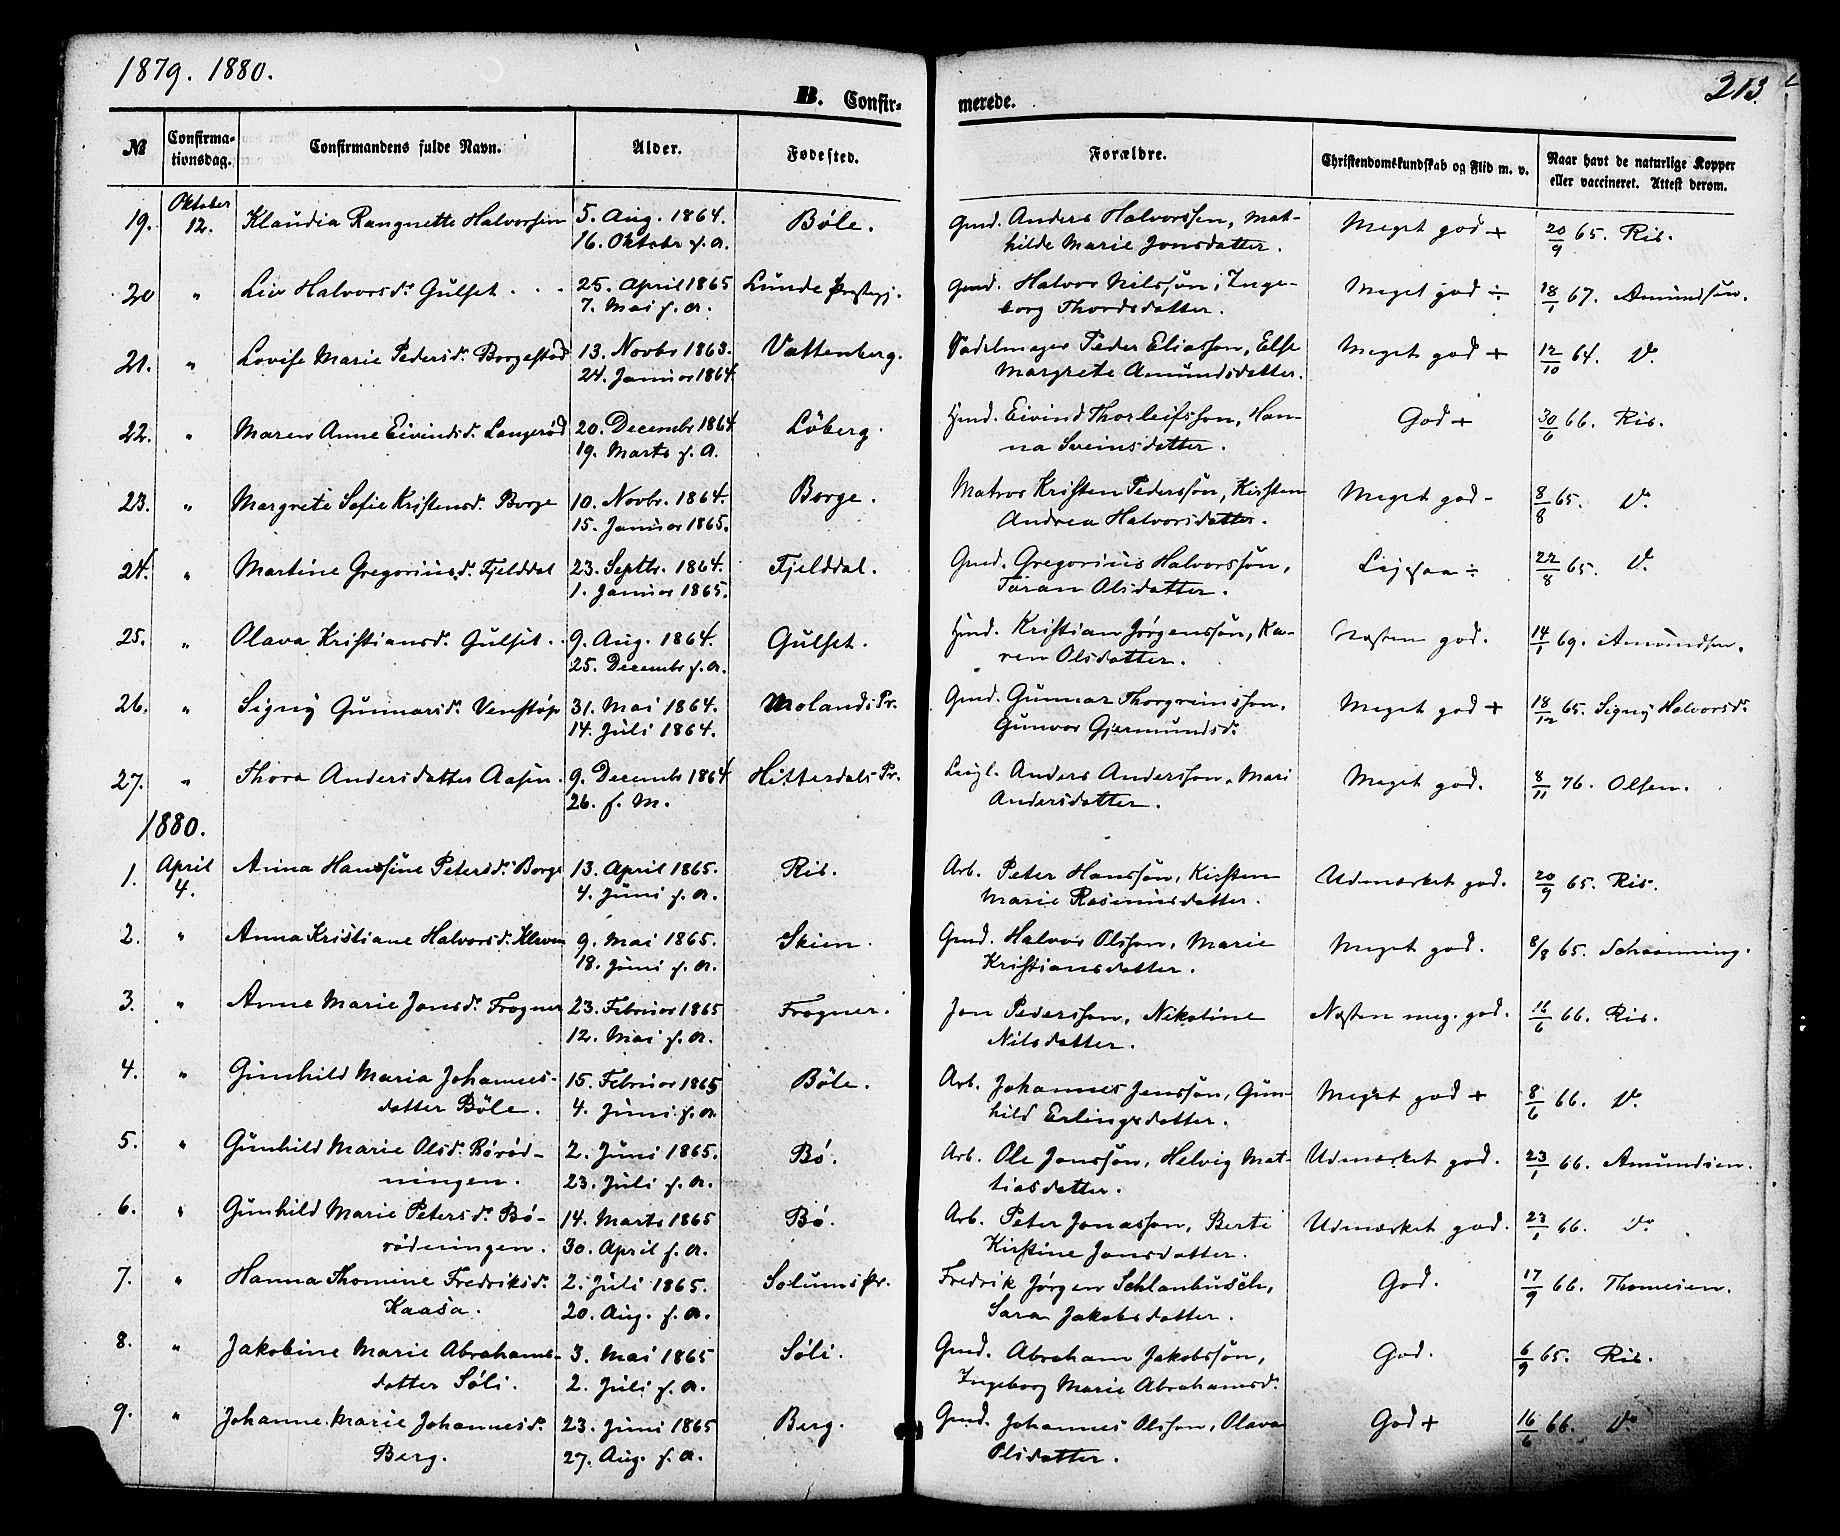 1879. 1880.
213.
B. Confir-
merede.
No
Confirma-
tionsdag.
Confirmandens fulde Navn.
Alder.
Fødested.
Forældre.
Christendomskundskab og Flid m. v.
Naar havt de naturlige Kopper
eller vaccineret. Attest derom.
19. Oktober 12. Klaudia Rangnette Halvorsen 5. Aug. 1864. Bøle. Gmd. Anders Halvorssen, Mat- Meget god + 20/9 65. Ris.
16. Oktobr s. a. hilde Marie Jonsdatter.
20 " Liv Halvorsd. Gulset . . . 25. April 1865 Lunde Præstegj. Gmd. Halvor Nilsson, Inge- Meget god ÷ 18/1 67. Amundsen.
7. Mai s. a. borg Thordsdatter.
21. " Lovise Marie Pedersd. Borgestad 13. Novbr 1863. Vattenberg. Sadelmager Peder Eliasson, Else Meget god + 12/10 64. Do
24. Januar 1864. Margrete Amundsdatter.
22. " Maren Anne Eivindsd. Langerød 20. Decembr 1864 Løberg. Hmd. Eivind Thorleifsson, Han- God + 30/6 66. Ris.
19. Marts f. A. na Sveinsdatter.
23. " Margrete Sofie Kristensd. Borge 10. Novbr. 1864. Borge. Matros Kristen Pedersson, Kirsten Meget god - 8/8 65. Do
15. Januar 1865. Andrea Halvorsdatter.
24. " Martine Gregoriusd. Fjelddal 23. Septbr. 1864. Fjelddal. Gmd. Gregorius Halvorsson, Ligesaa ÷ 22/8 65. Do
1. Januar 1865. Taran Olsdatter.
25. " Olava Kristiansd. Gulset . . 9. Aug. 1864. Gulset. Hmd. Kristian Jørgensson, Ka- Næsten god. 14/1 69. Amundsen.
25. Decembr s. a. ren Olsdatter.
26. " Signy Gunnarsd. Venstøp 31. Mai 1864. Molands Pr. Gmd. Gunnar Thorgrimsson, Meget god + 18/12 65. Signy Halvorsd.
14. Juli 1864. Gunvor Gjermundsd.
27. " Thora Andersdatter Aasen. 9. Decembr 1864 Hitterdals Pr. Leigl. Anders Andersson, Mari Meget god. 8/11 76. Olsen.
26. s. M. Andersdatter.
1880.
1. April 4. Anna Hansine Petersd. Borge 13. April 1865. Ris. Arb. Peter Hansson, Kirsten Udmærket god. 20/9 65. Ris.
4. Juni s. a. Marie Rasmusdatter.
2. " Anna Kristiane Halvorsd. Kleven 9. Mai 1865. Skien. Gmd. Halvor Olsson, Marie Meget god. 8/8 65. Schanning.
18. Juni s. a. Kristiansdatter.
3. " Anne Marie Jonsd. Frogner 23. Februar 1865 Frogner. Jon Pedersson, Nikoline Næsten meg. god. 16/6 66. Ris.
12. Mai s. a. Nilsdatter.
4. " Gunhild Maria Johannes- 15. Februar 1865 Bøle. Arb. Johannes Jensson, Gun- Meget god + 8/6 66. Do
datter Bøle. 4. Juni s. a. hild Erlingsdatter.
5. " Gunhild Marie Olsd. Børød- 2. Juni 1865. Bø. Arb. Ole Jonsson, Helvig Mat- Udmærket god. 23/1 66. Amundsen.
ningen. 23. Juli s. a. tiasdatter.
6. " Gunhild Marie Petersd. Bø- 14. Marts 1865 Bø. Arb. Peter Jonasson, Berte Udmærket god. 23/1 66. Do
rødningen. 30. April s. a. Kirstine Jonsdatter.
7. " Hanna Thomine Fredriksd. 2. Juli 1865. Solums Pr. Fredrik Jørgen Schlanbusch, God. 17/9 66. Thomesen.
Kaasa. 20. Aug. s. a. Sara Jakobsdatter.
8. " Jakobine Marie Abrahams- 3. Mai 1865 Søli. Gmd. Abraham Jakobsson, God. 6/9 65. Ris.
datter Søli. 2. Juli s. a. Ingeborg Marie Abrahamsd.
9. " Johanne Marie Johannesd. 23. Juni 1865 Berg. Gmd. Johannes Olsson, Olava God + 16/6 66. Do
Berg. 27. Aug. s. a. Olsdatter.